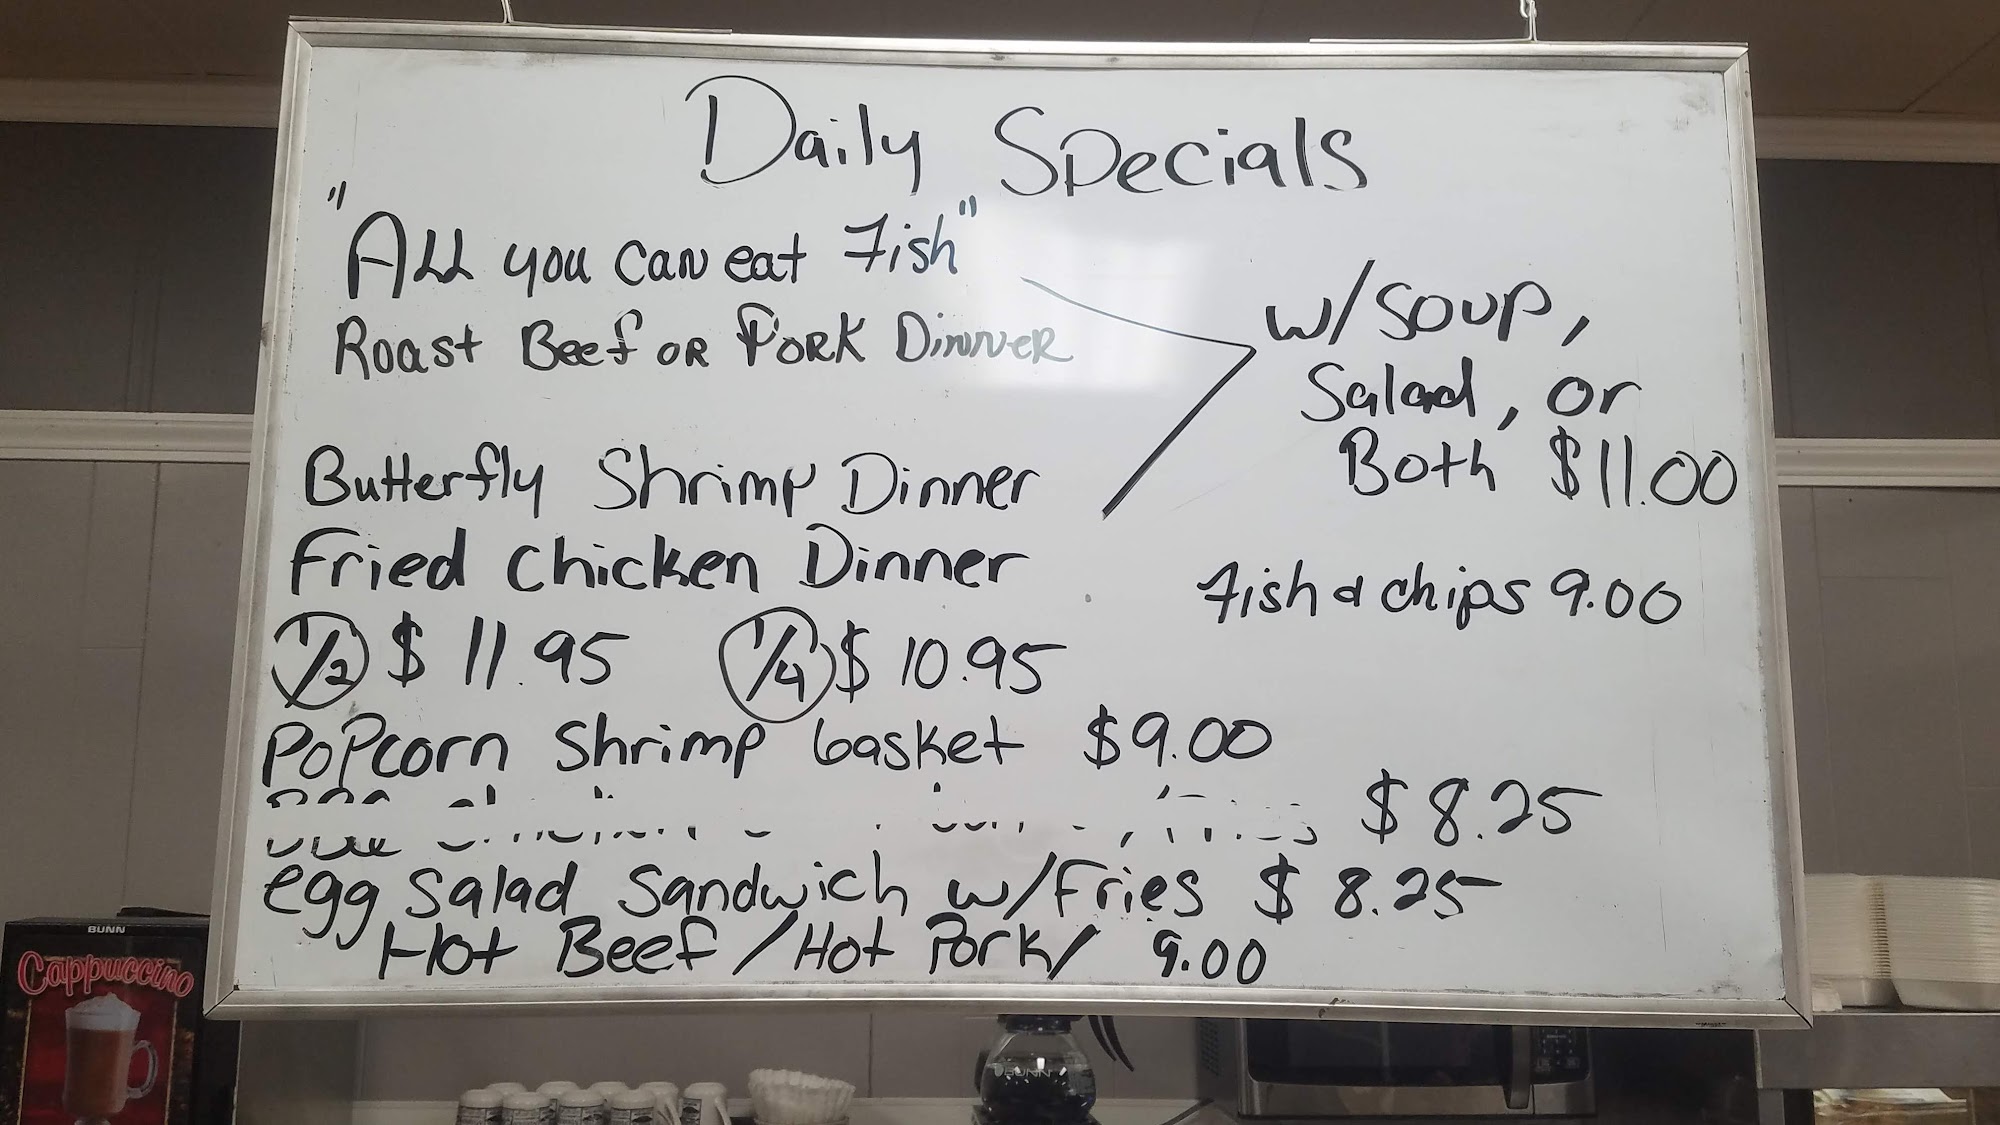 Daily Specials
"All you can eat Fish"
Roast Beef or Pork Dinner
w/soup,
Salad, or
Both $11.00
Butterfly Shrimp Dinner
Fried chicken Dinner
1/2 $11.95 1/4 $10.95
Fish & chips 9.00
Popcorn shrimp basket $9.00
$8.25
egg salad sandwich w/Fries $8.25
Hot Beef/Hot Pork/ 9.00
BUNN
Cappuccino
BUNN